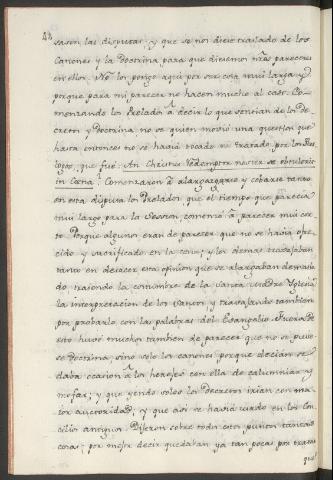 42
sasen las disputas, y que se nos diese traslado de los
Canones y la doctrina para que diesemos nros pareceres
en ellos. No los pongo aqui por ser cosa mui larga y
porque para mi parecer no hacen mucho al caso. Co-
menzando los Prelados a decir lo que sentian de los De-
cretos y Doctrina, no se quien movió una question que
hasta entonces no se habia tocado ni tratado por los Theo-
logos, que fue: An Christus Redemptor noster se obtulerit
in Cœna? Comenzaron a alargarse y cebarse tanto
en esta disputa los Prelados que el tiempo que parecia
mui largo para la Session, comenzó a parecer mui cor-
to. Porque algunos eran de parecer que no se habia ofre-
cido y sacrificado en la cena; y los demas trabajaban
tanto en desacer esta opinion que se alargaban demasia-
do, trayendo la costumbre de la Santa Madre Yglesia,
la interpretacion de los Santos y trabajando tambien
por probarlo con las palabras del Evangelio. Fuera de
esto hubo muchos tambien de parecer que no se pusie-
se doctrina, sino solo los canones porque decian se
daba ocasion a los hereges con ella de calumniar y
mofar; y que yendo solos los Decretos irian con ma-
ior autoridad; y que asi se habia usado en los Con-
cilios antiguos. Dijeron sobre todos estos puntos tantas
cosas, por mejor decir quedaban ya tan pocas por tratar
que